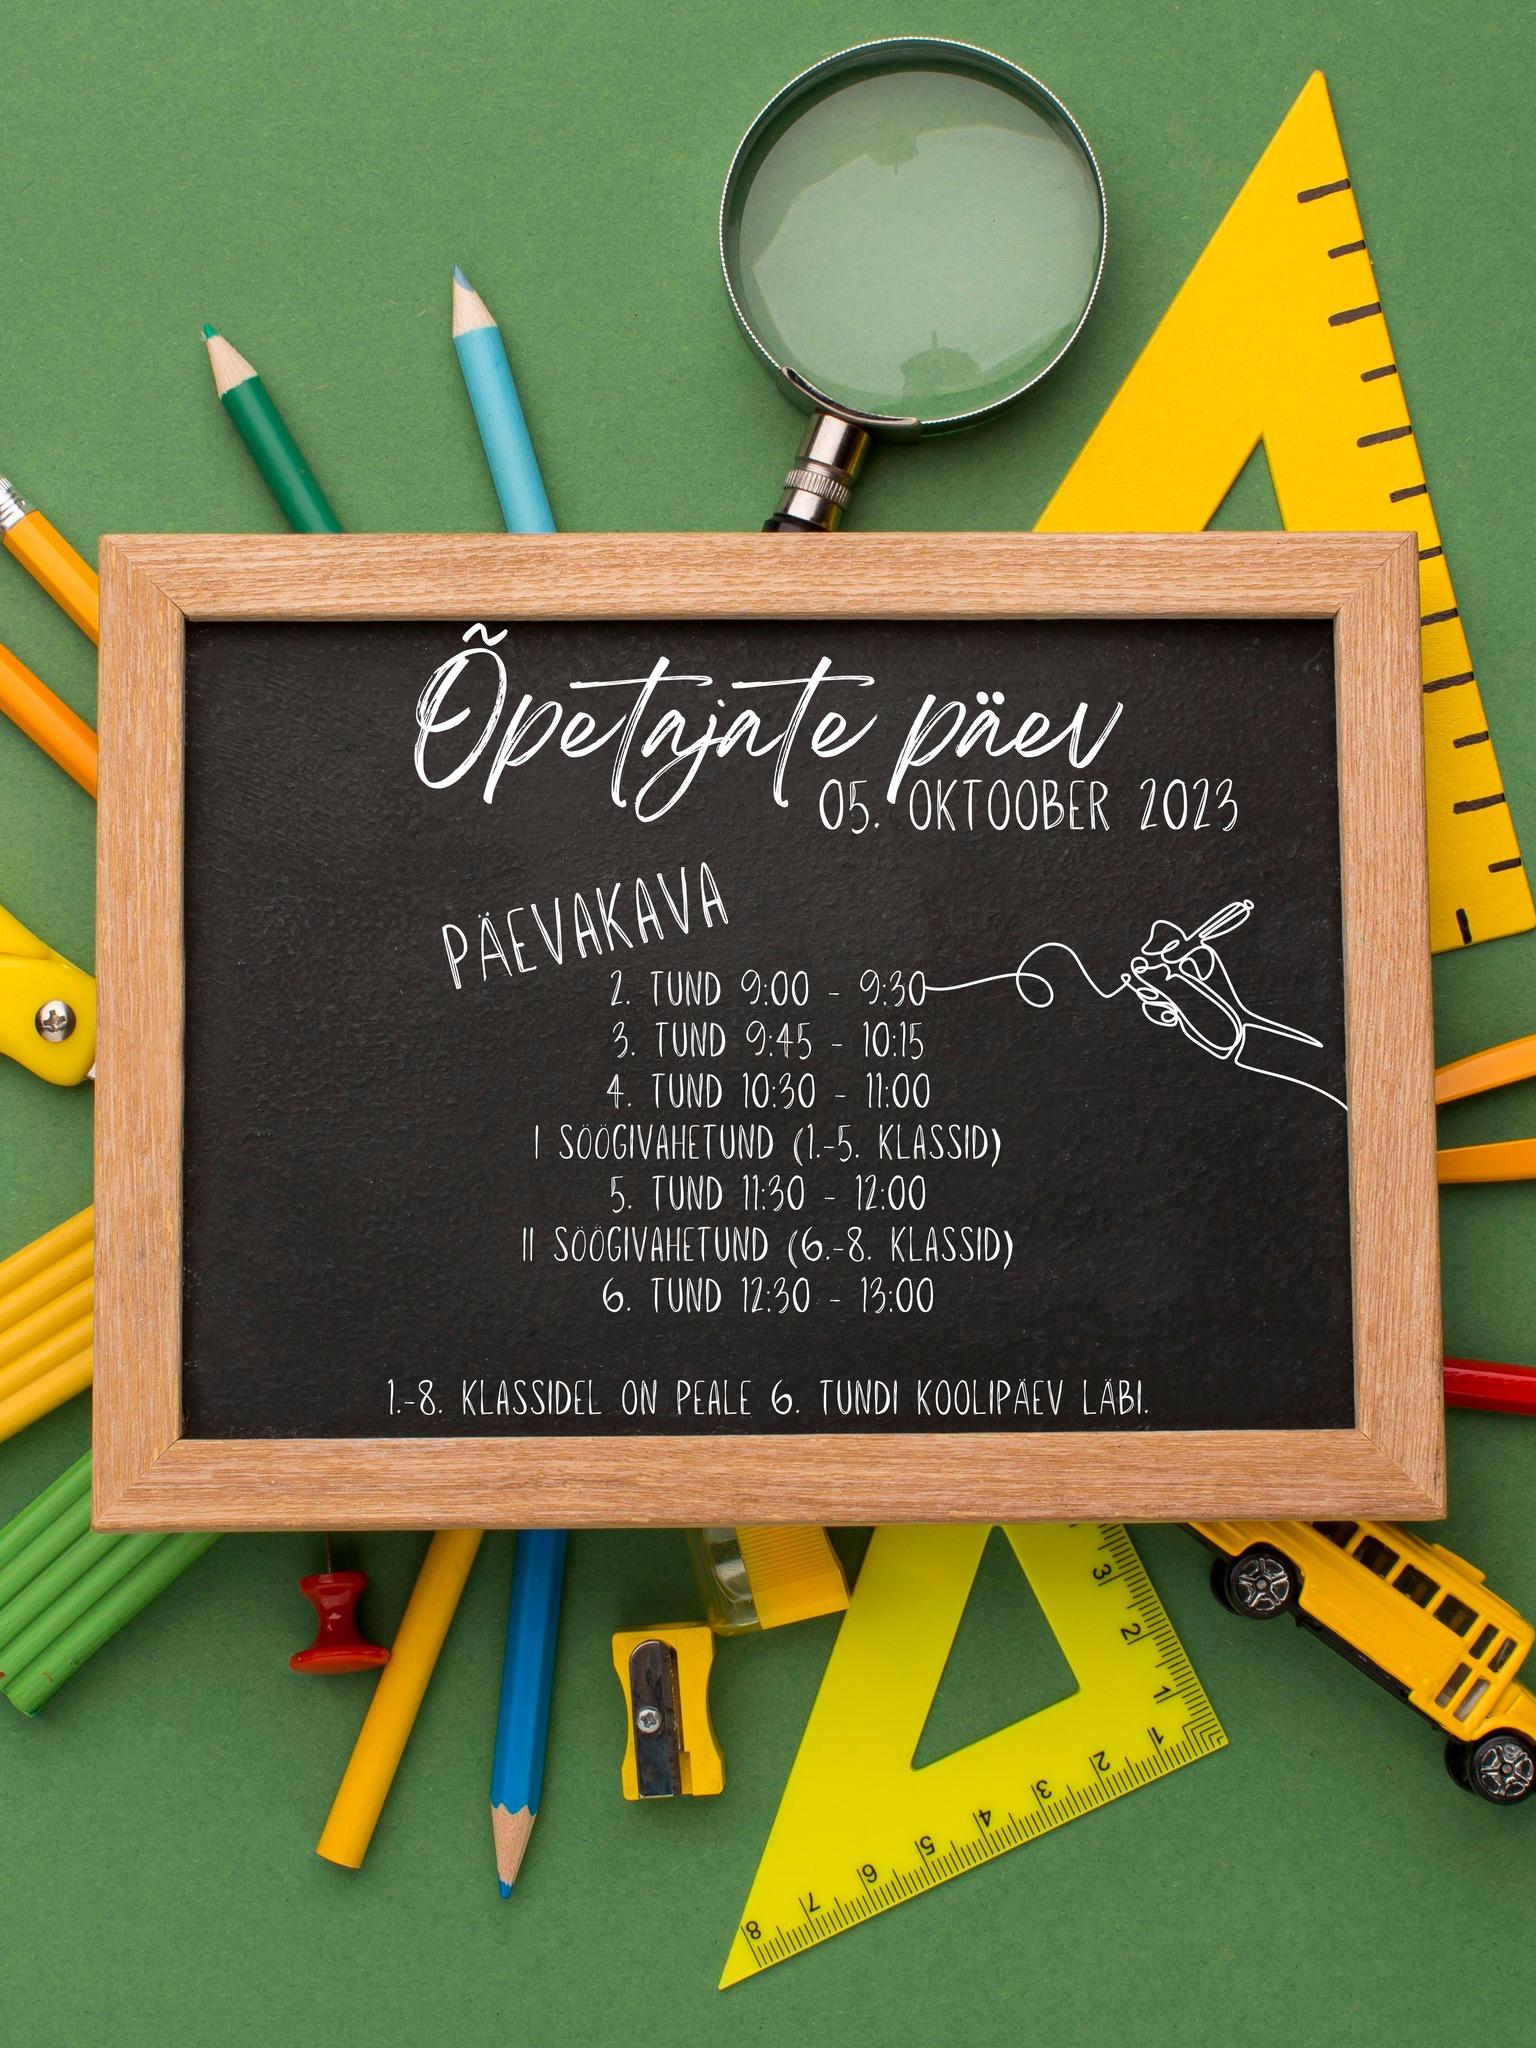 Õpetajate päev
05. OKTOOBER 2023
PÄEVAKAVA
2. TUND 9:00 - 9:30
3. TUND 9:45 - 10:15
4. TUND 10:30 - 11:00
I SÖÖGIVAHETUND (1.-5. KLASSID)
5. TUND 11:30 - 12:00
II SÖÖGIVAHETUND (6.-8. KLASSID)
6. TUND 12:30 - 13:00
1.-8. KLASSIDEL ON PEALE 6. TUNDI KOOLIPÄEV LÄBI.
3
2
1
1
2
3
4
5
6
7
8